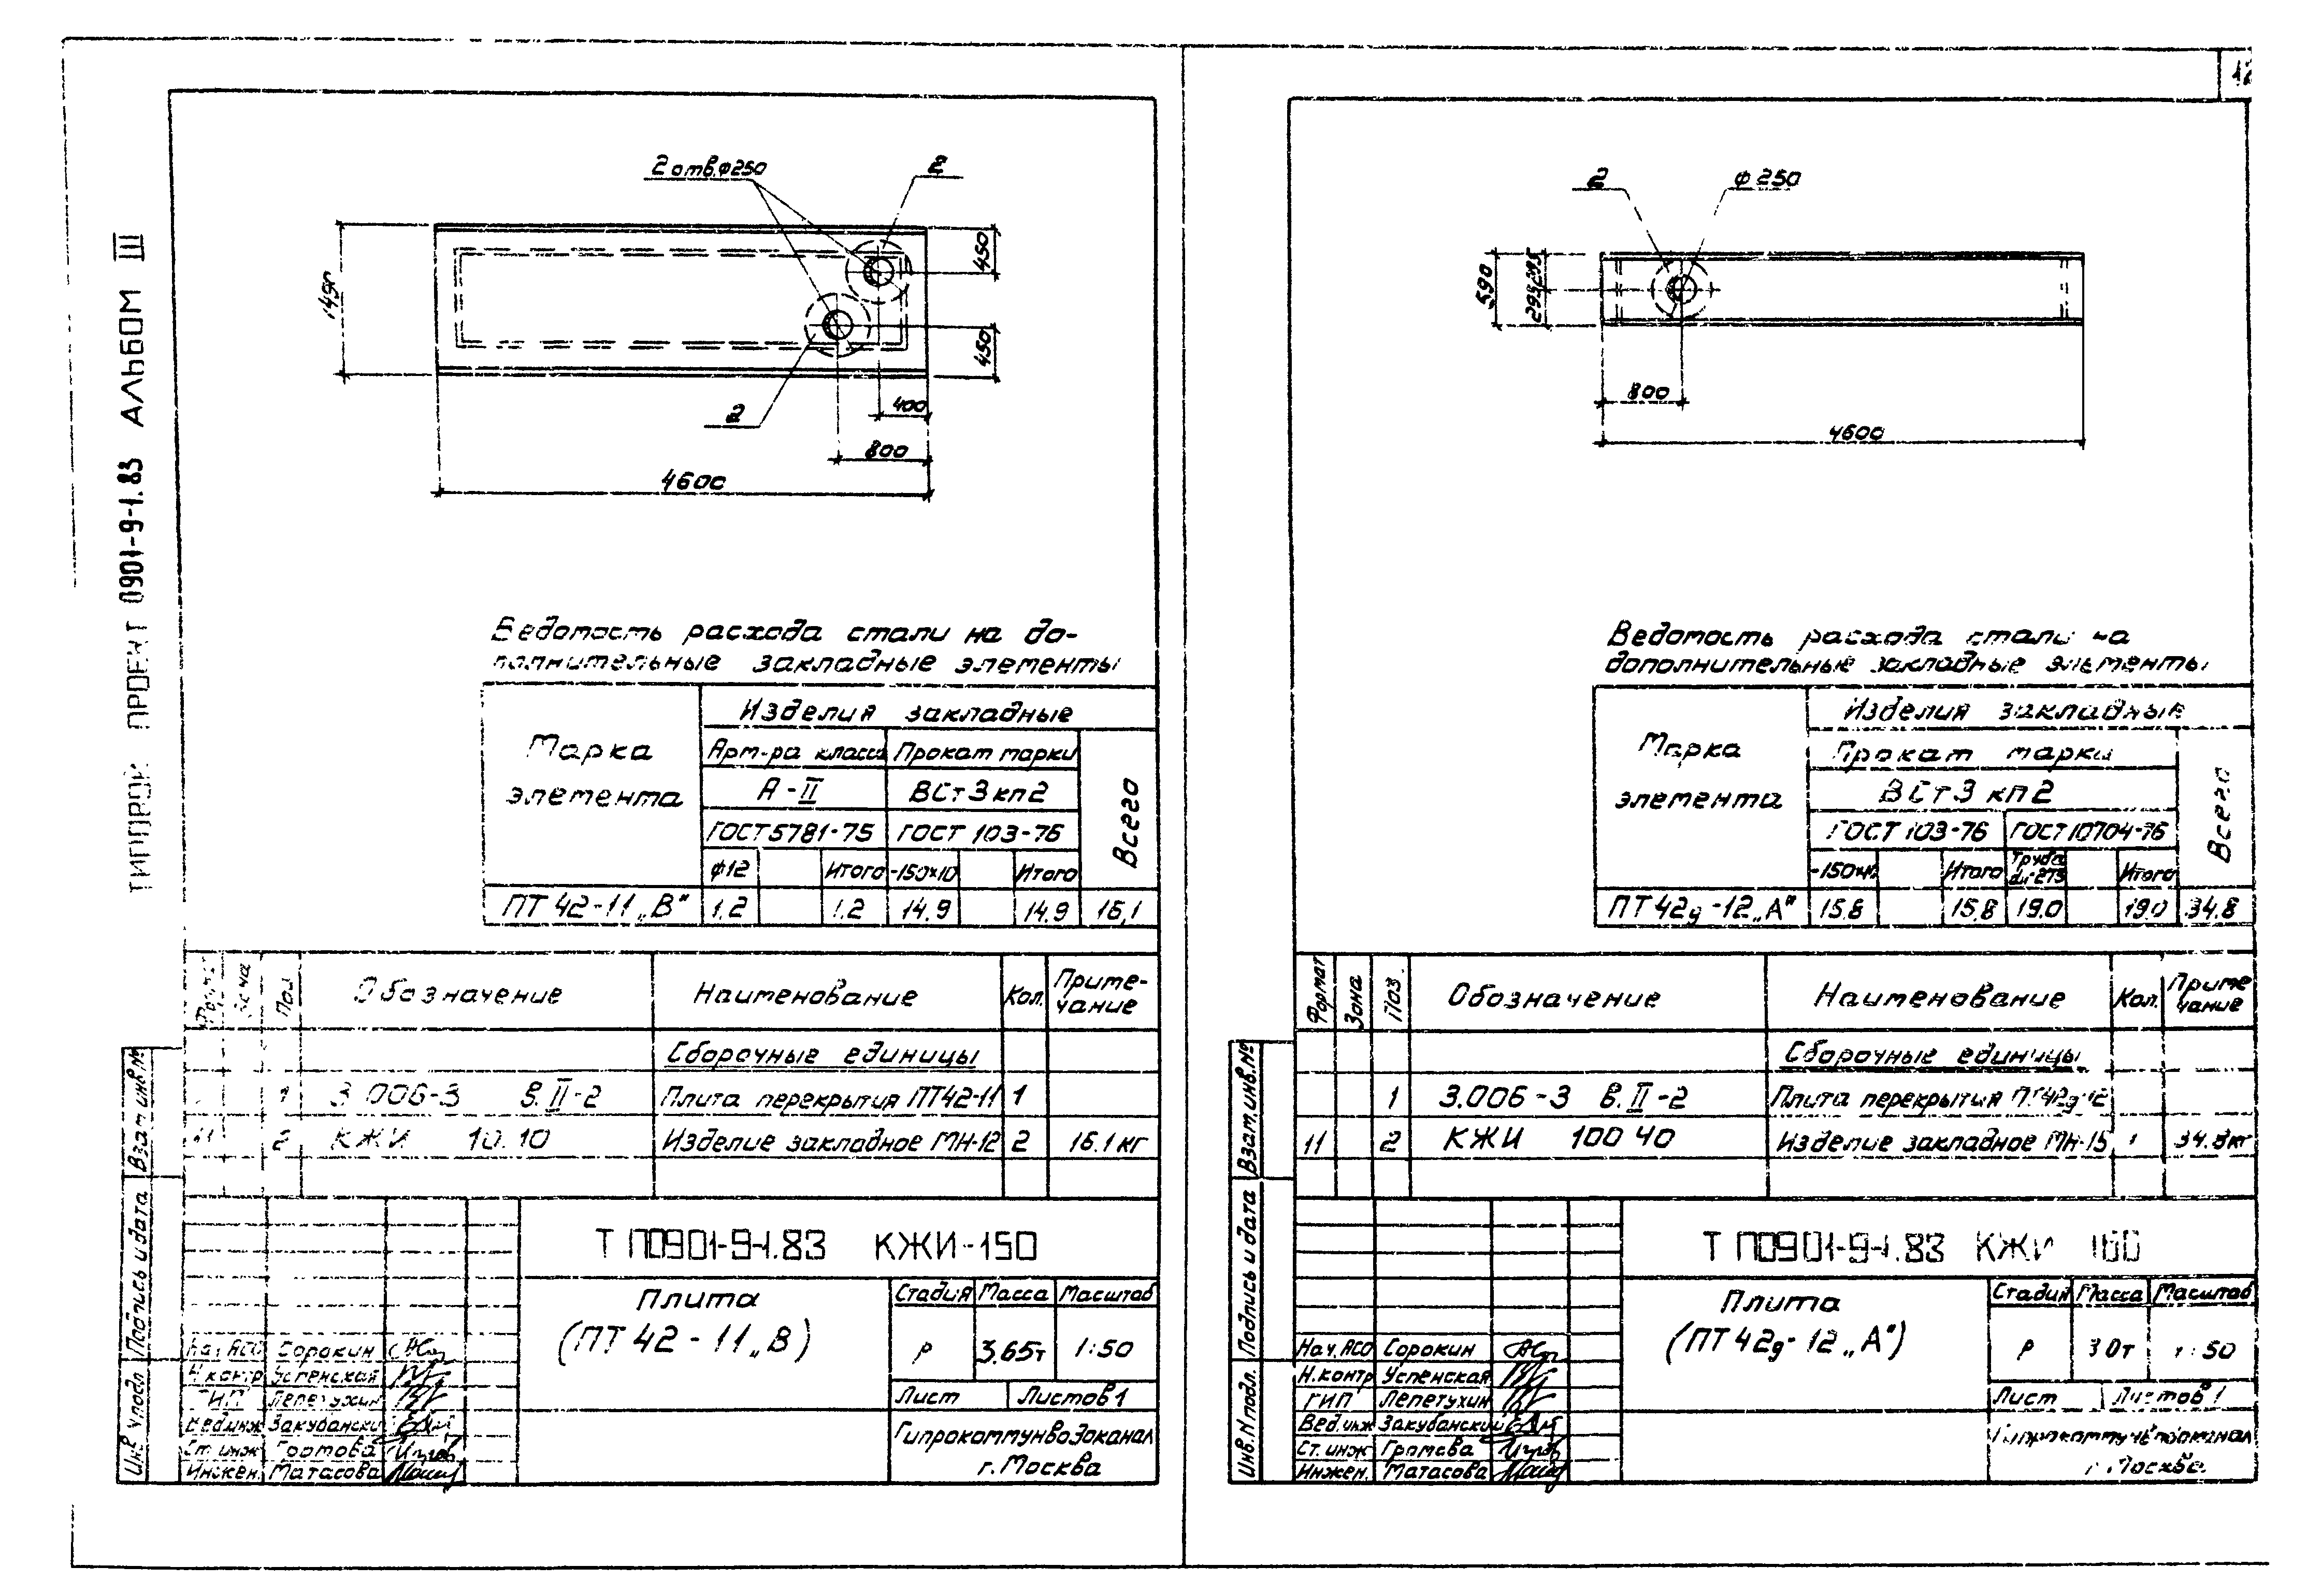 12
ТИПОВОЙ ПРОЕКТ 0901-9-1.83 АЛЬБОМ III
2 отв. ф250
2
1490
450
450
2
400
800
4600
Ведомость расхода стали на до-
полнительные закладные элементы
Марка элемента
Изделия закладные
Арм-ра класса
Прокат марки
Всего
А-II
ВСт3кп2
ГОСТ 5781-75
ГОСТ 103-76
ф12
Итого
-150×10
Итого
ПТ 42-11 „В" 1.2 1.2 14.9 14.9 16,1
Поз
Обозначение
Наименование
Кол.
Приме-
чание
Сборочные единицы
1 3.006-3 в.II-2 Плита перекрытия ПТ42-11 1
11 2 КЖИ 10.10 Изделие закладное МН-12 2 16.1 кг
Взам инв.№
Подпись и дата
Инв N подл
Т П0901-9-1.83 КЖИ-150
Плита
(ПТ 42-11 „В)
Стадия Масса Масштаб
Р 3,65т 1:50
Лист Листов 1
Гипрокоммунводоканал
г. Москва
Нач. АСО Сорокин
Н контр Успенская
ГИП Лепетухин
Вед.инж Закубански
Ст. инж Громова
Инжен. Матасова
2
ф 250
590
295 295
800
4600
Ведомость расхода стали на
дополнительные закладные элементы
Марка элемента
Изделия закладные
Прокат марки
Всего
ВСт3 кп2
ГОСТ 103-76
ГОСТ 10704-76
Итого
Труба
Итого
ПТ 42д-12 „А" 15.8 15.8 19.0 19.0 34.8
Формат
Зона
Поз.
Обозначение
Наименование
Кол.
Приме
чание
Сборочные единицы
1 3.006-3 в.II-2 Плита перекрытия ПТ42д-12
11 2 КЖИ 100 40 Изделие закладное МН-15 1 34.8кг
Взам.инв.№
Подпись и дата
Инв.N подл.
Т П0901-9-1.83 КЖИ 160
Плита
(ПТ 42д-12 „А")
Стадия Масса Масштаб
Р 3 0т 1:50
Лист Листов 1
Гипрокоммунводоканал
г. Москва
Нач. АСО Сорокин
Н.контр Успенская
ГИП Лепетухин
Вед.инж Закубанский
Ст. инж Громова
Инжен. Матасова